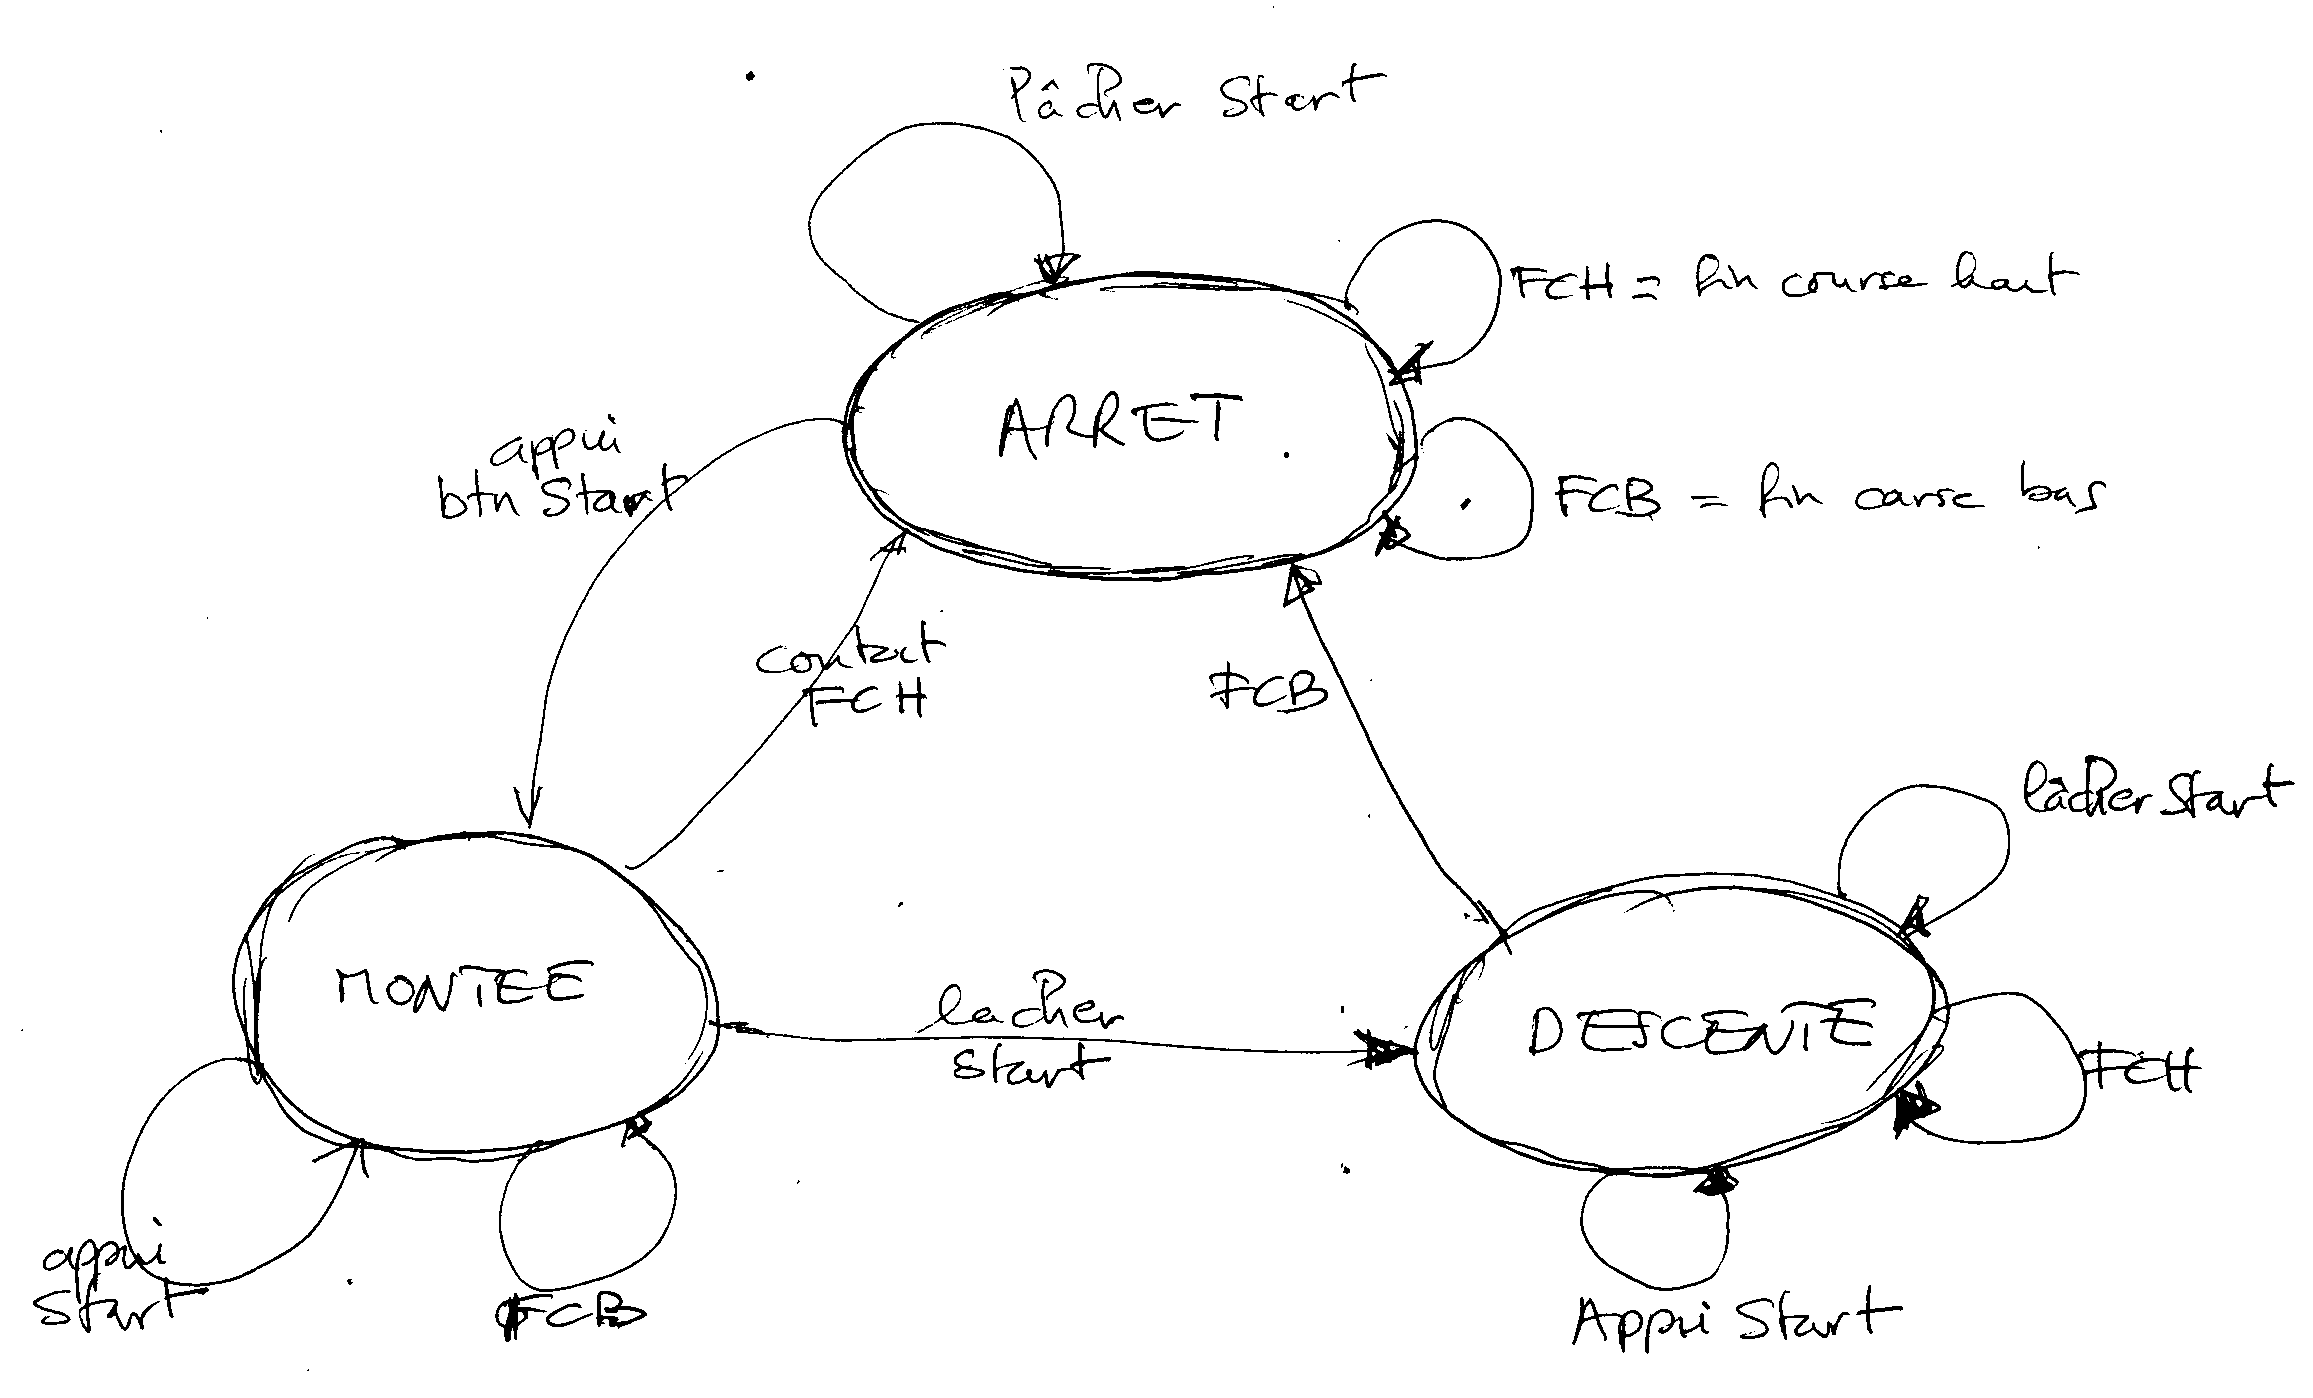 lâcher Start
FCH = fin course haut
ARRET
appui
btn Start
FCB = fin carse bas
contact
FCH
FCB
lâcher Start
MONTEE
lacher
Start
DESCENTE
FCH
appui
Start
FCB
Appui Start